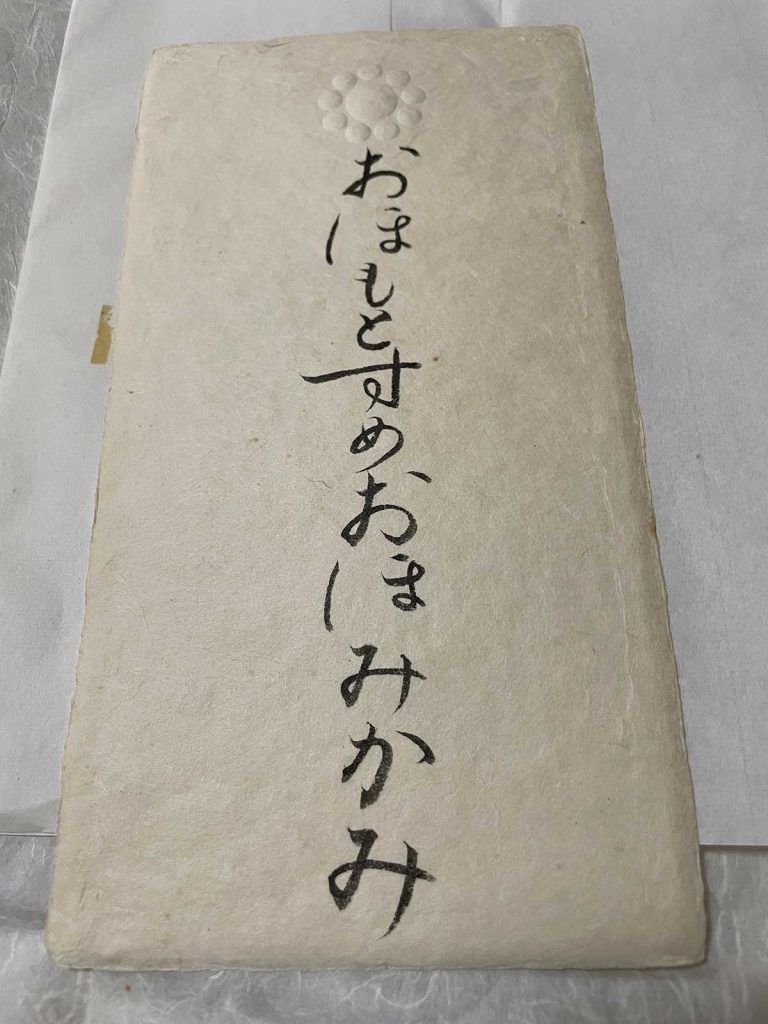 おほもとすめおほみかみ